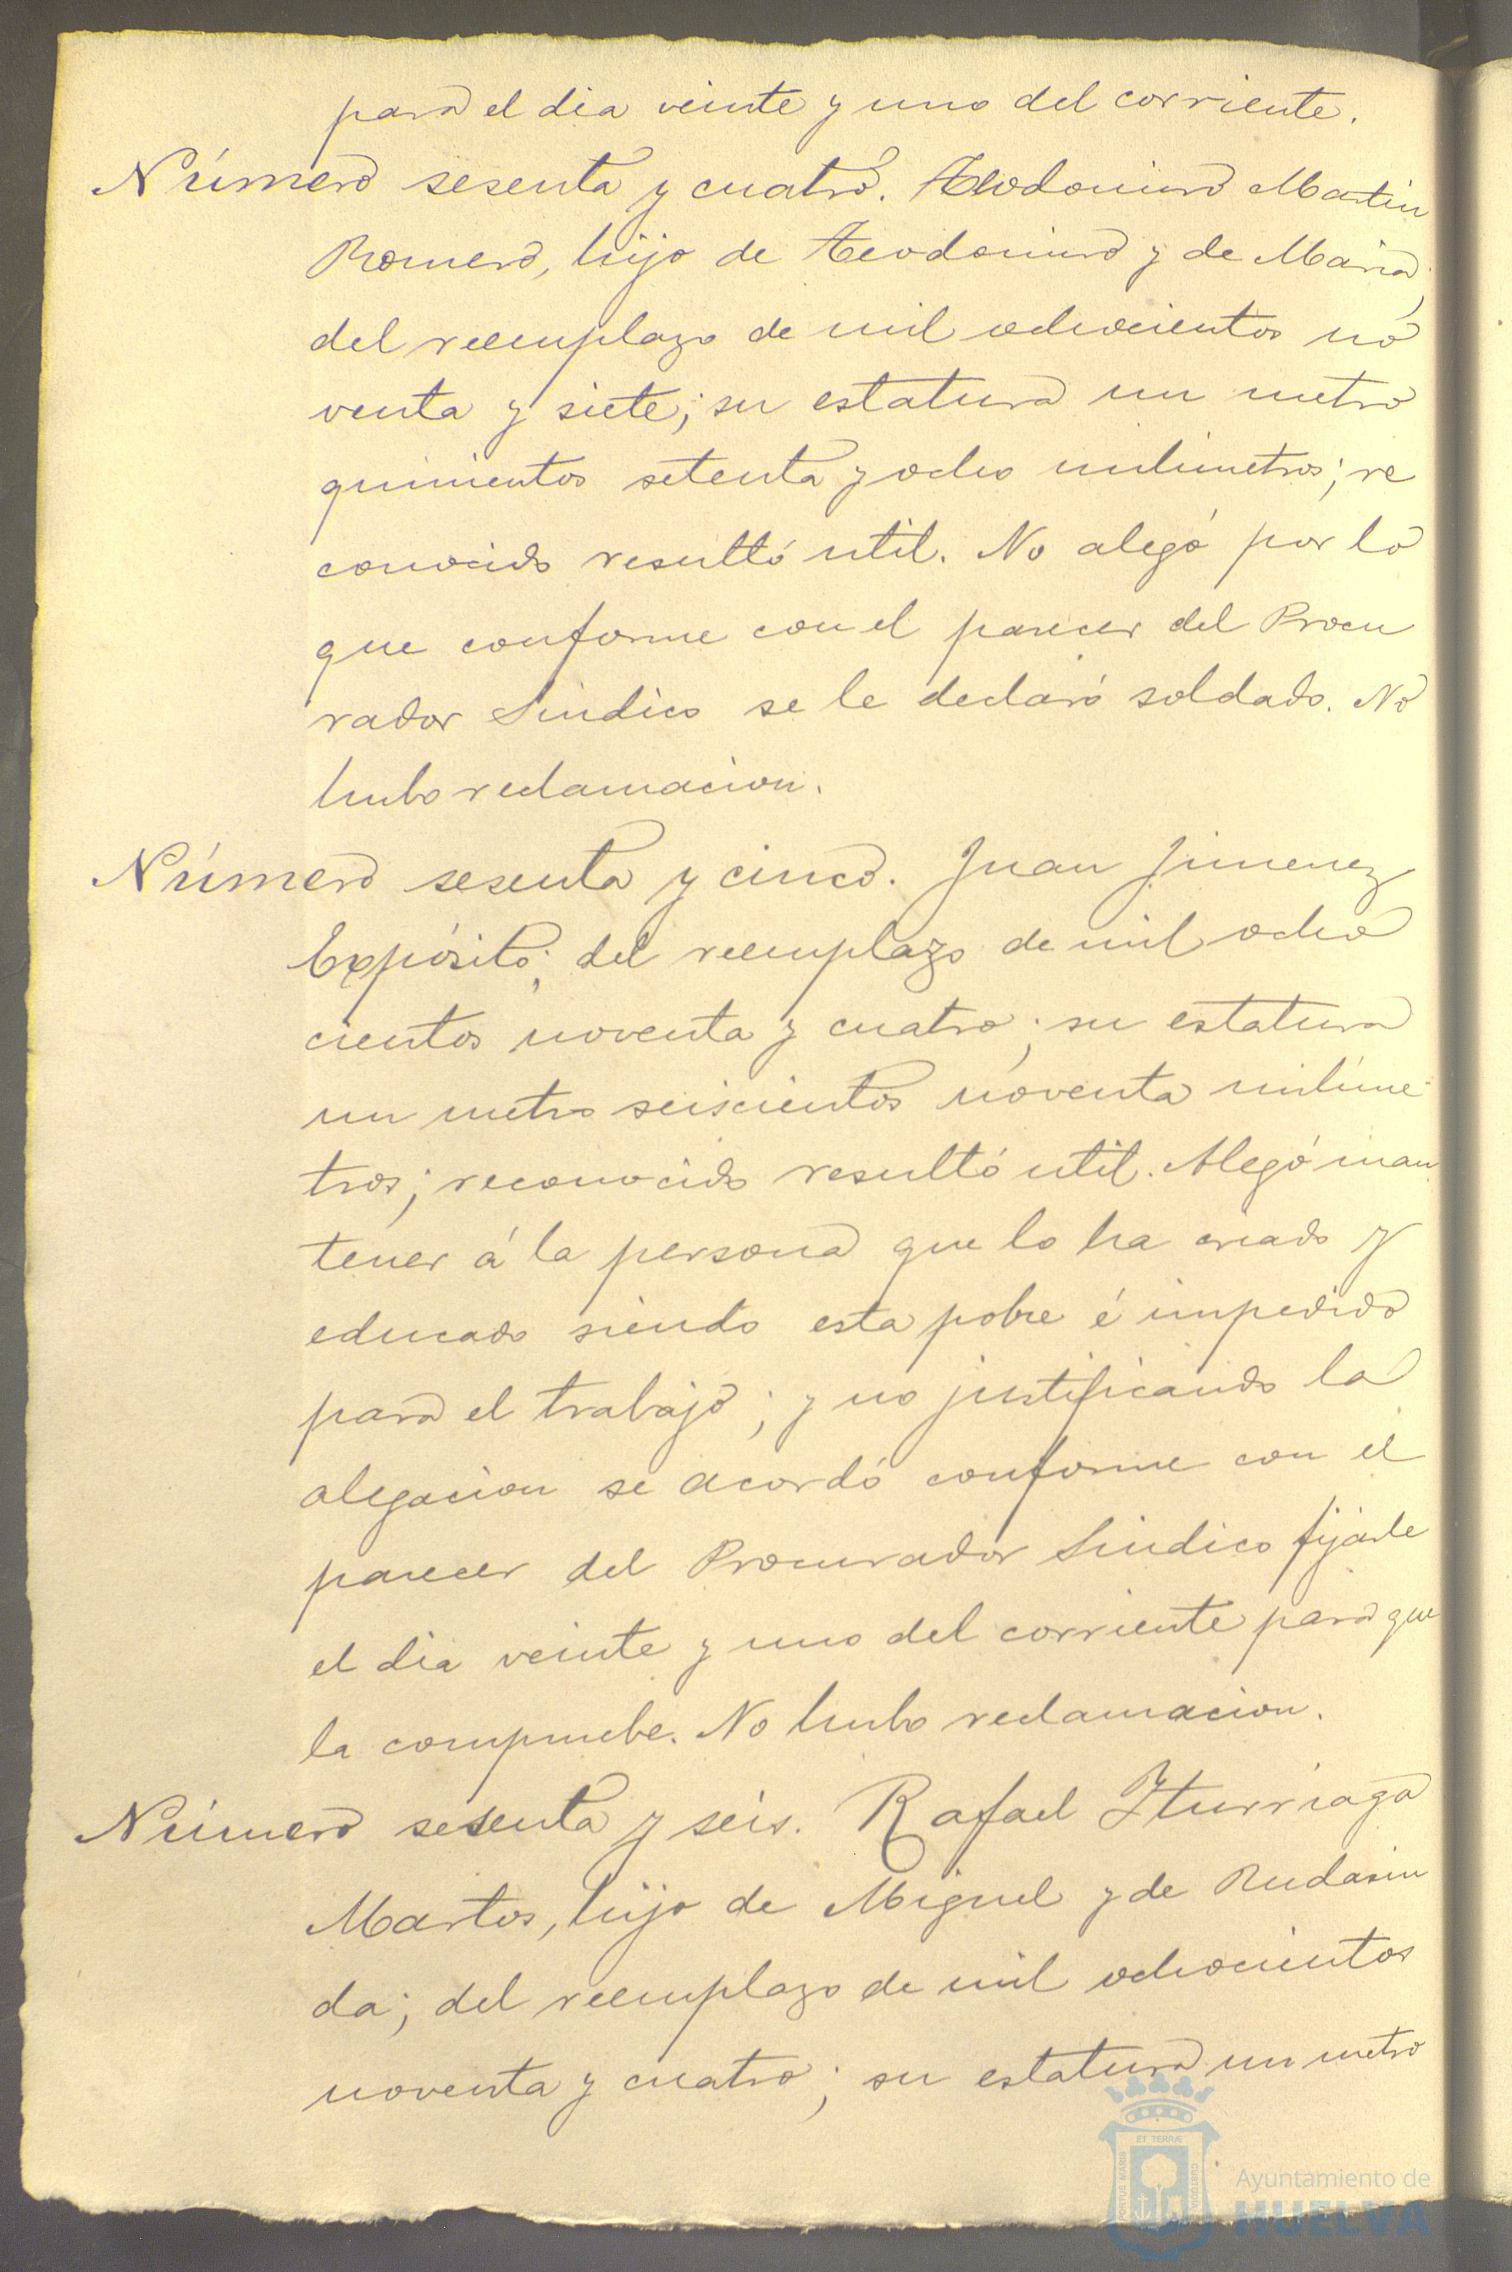 para el dia veinte y uno del corriente.
Número sesenta y cuatro. Teodomiro Martin
Romero, hijo de Teodomiro y de Maria;
del reemplazo de mil ochocientos no
venta y siete; su estatura un metro
quinientos setenta y ocho milimetros; re
conocido resultó util. No alegó por lo
que conforme con el parecer del Procu
rador Sindico se le declaró soldado. No
hubo reclamacion.
Número sesenta y cinco. Juan Jimenez
Expósito; del reemplazo de mil ocho
cientos noventa y cuatro; su estatura
un metro seiscientos noventa milime
tros; reconocido resultó util. Alegó man
tener á la persona que lo ha criado y
educado siendo esta pobre é impedido
para el trabajo; y no justificando la
alegacion se acordó conforme con el
parecer del Procurador Sindico fijarle
el dia veinte y uno del corriente para que
la compruebe. No hubo reclamacion.
Número sesenta y seis. Rafael Iturriaga
Martos, hijo de Miguel y de Rudasin
da; del reemplazo de mil ochocientos
noventa y cuatro; su estatura un metro
ET TERRÆ
PORTUS MARIS
CUSTODIA
Ayuntamiento de
HUELVA